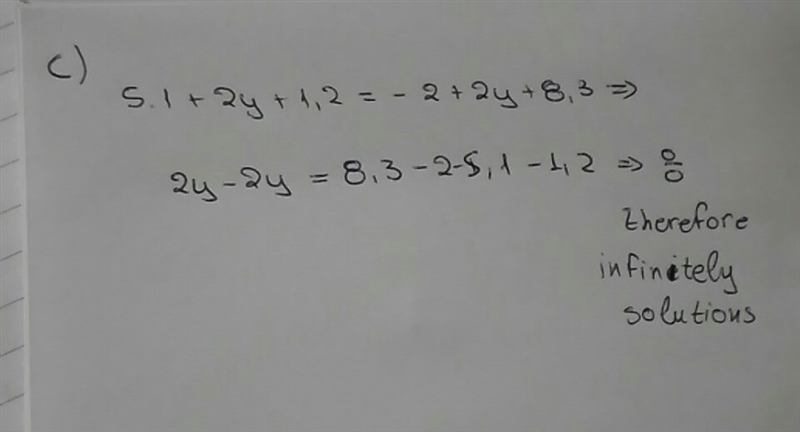 c)
5.1 + 2y + 1,2 = - 2 + 2y + 8,3 ⇒
2y - 2y = 8,3 - 2 - 5,1 - 1,2 ⇒ 0/0
therefore
infinitely
solutions